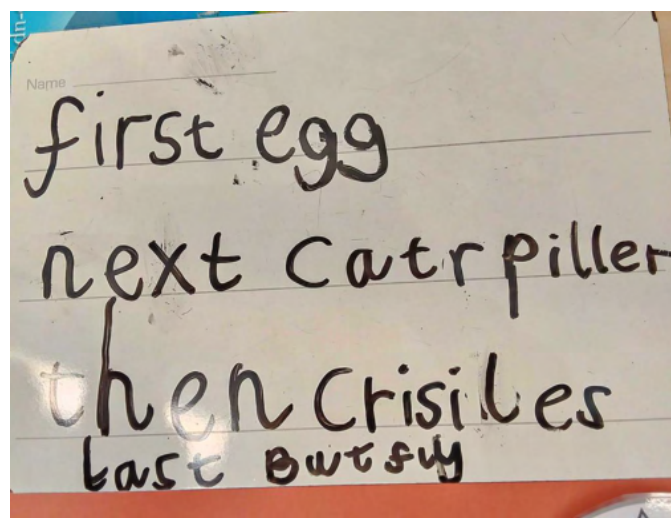 Name
first egg
next catrpiller
then crisiles
last Butfly